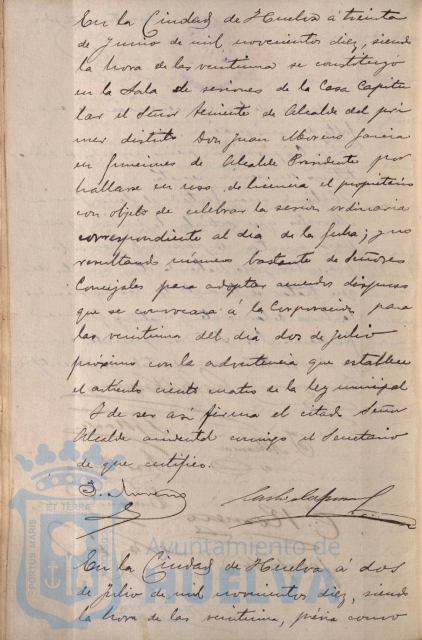 En la Ciudad de Huelva á treinta
de Junio de mil novecientos diez, siendo
la hora de las veintiuna se constituyó
en la Sala de sesiones de la Casa Capitu
lar el Señor Teniente de Alcalde del pri
mer distrito Don Juan Moreno Garcia
en funciones de Alcalde Presidente por
hallarse en uso de licencia el propietario
con objeto de celebrar la sesion ordinaria
correspondiente al dia de la fecha; y no
resultando número bastante de Señores
Concejales para adoptar acuerdos dispuso
que se convocara á la Corporación para
las veintiuna del dia dos de Julio
próximo con la advertencia que establece
el artículo ciento cuatro de la ley municipal
Y de ser así firma el citado Señor
Alcalde accidental conmigo el Secretario
de que certifico.
J. Moreno
En la Ciudad de Huelva á dos
de julio de mil novecientos diez, siendo
la hora de las veintiuna, prévia convo
PORTUS MARIS
ET TERRÆ
CUSTODIA
Ayuntamiento de
HUELVA